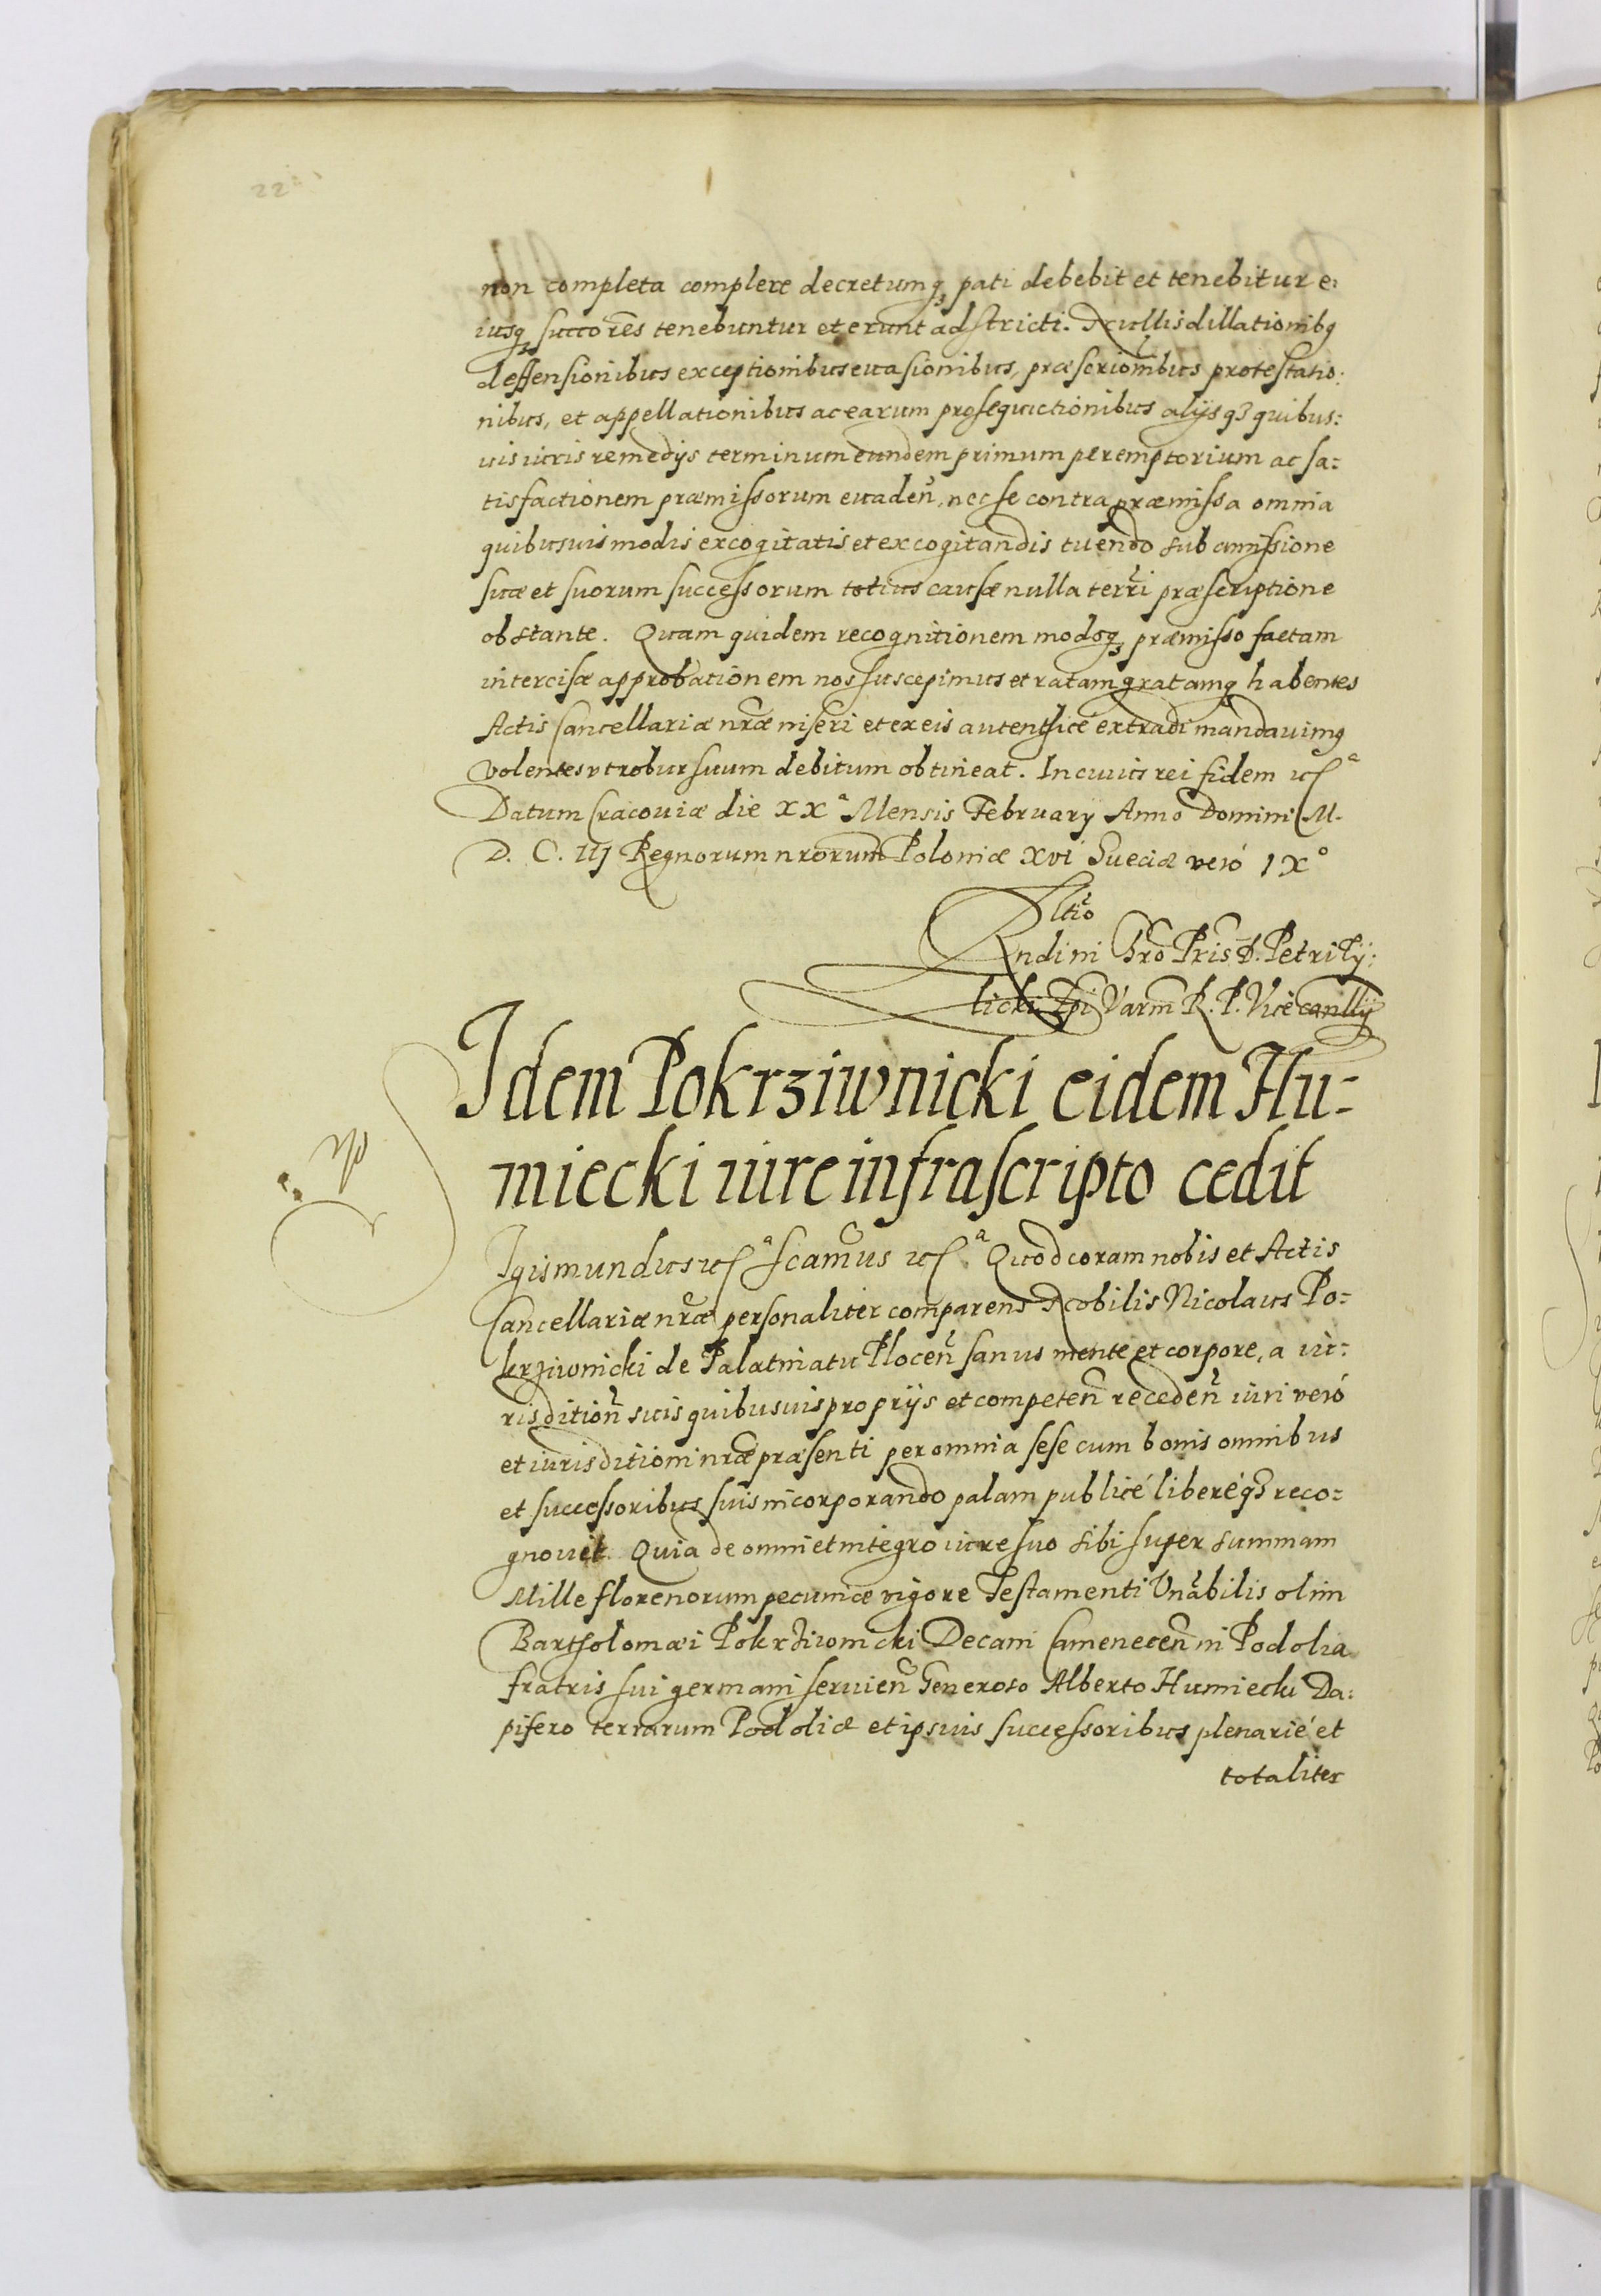 non completa complere decretumq3 pati debebit et tenebitur e:
iusq3 succōres tenebuntur et erunt adstricti. Nullis dillationibq
deffensionibus exceptionibus euasionibus, præscrioibus protestatio:
nibus, et appellationibus ac earum prosequutionibus alijsq3 quibus:
uis iuris remedijs terminum eundem primum peremptorium ac sa:
tisfactionem præmissorum euaden̄, nec se contra præmissa omnia
quibusuis modis excogitatis et excogitandis tuendo sub amissione
suæ et suorum successorum totius causæ nulla terri præscriptione
obstante. Quam quidem recognitionem modoq3 præmisso factam
intercisæ approbationem nos suscepimus et ratam gratamq habentes
Actis Cancellariæ nræ inseri et ex eis autenthice extradi mandauimq
volentes vt robur suum debitum obtineat. In cuius rei fidem etca
Datum Cracouiæ die XXa Mensis February Anno Domini M.
D. C. iij Regnorum nrorum Poloniæ xvi Sueciæ veró IXo
Rltio
Rndini Chro Pris D. Petri Ty:
licki Epi Varm R. P. Vice canllij
Idem Pokrziwnicki eidem Hu:
miecki iure infrascripto cedit
Igismundus etca scamus etca Quod coram nobis et Actis
Cancellariæ nræ personaliter comparens Nobilis Nicolaus Po:
krziwnicki de Palatinatu Plocen̄ sanus mente et corpore, a iu:
risdition̄ suis quibusuis proprijs et competen̄ receden̄ iuri veró
et iurisditioni nræ præsenti per omnia sese cum bonis omnibus
et successoribus suis incorporando palam publicé liberéq3 reco:
gnouit. Quia de omni et integro iure suo sibi super summam
Mille florenorum pecuniæ vigore Testamenti Vnābilis olim
Bartholomæi Pokrziwnicki Decani Camenecen̄ in Podolia
fratris sui germani seruien̄ Generoso Alberto Humiecki Da:
pifero terrarum Podoliæ et ipsius successoribus plenarié et
totaliter